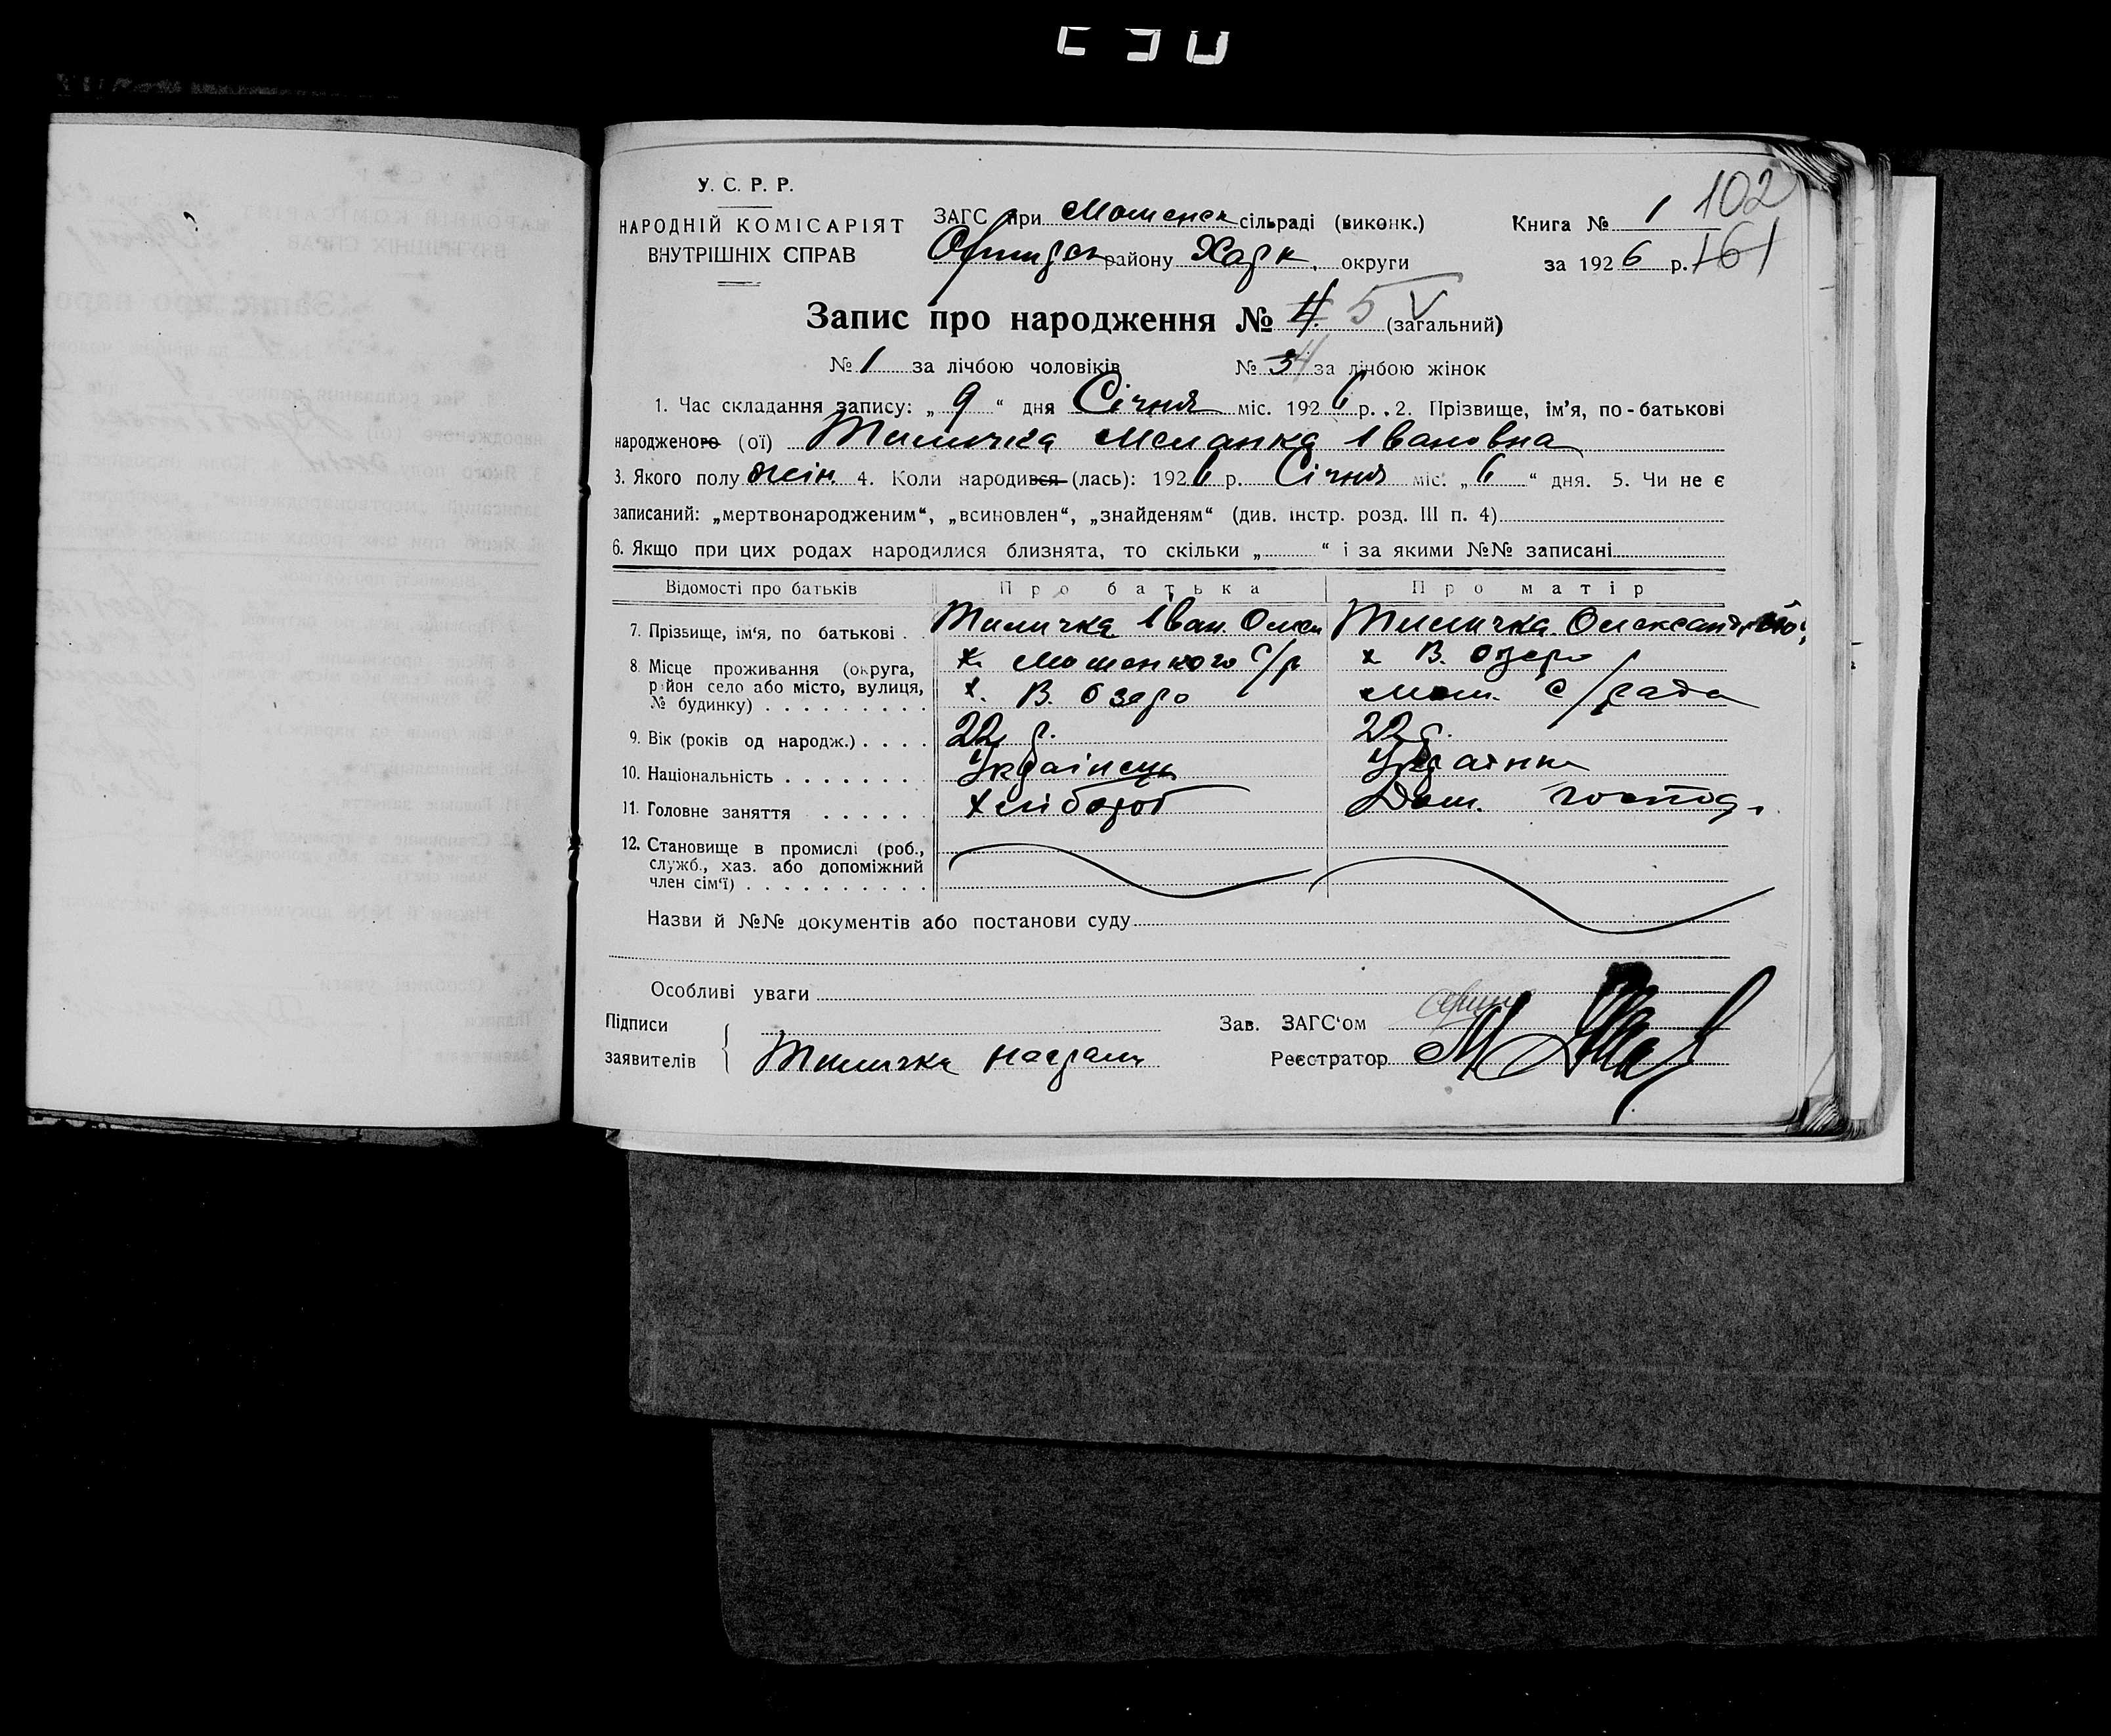 102
У. С. Р. Р.
НАРОДНІЙ КОМІСАРІЯТ
ВНУТРІШНІХ СПРАВ
ЗАГС при Мошенск сільраді (виконк.)
району Харк. округи
Книга № 1
за 1926 р. 161
Запис про народження № 4. 5 (загальний)
№ 1 за лічбою чоловіків № 3 4 за лічбою жінок
1. Час складання запису: „ 9 “ дня Січня міс. 1926 р. 2. Прізвище, ім’я, по-батькові
народженого (ої) Тимичка Меланка Івановна
3. Якого полу жін. 4. Коли народився (лась): 1926 р. Січня міс. „ 6 “ дня. 5. Чи не є
записаний: „мертвонародженим“, „всиновлен“, „знайденям“ (див. інстр. розд. III п. 4)
6. Якщо при цих родах народилися близнята, то скільки „ “ і за якими №№ записані
Відомості про батьків Про батька Про матір
7. Прізвище, ім‘я, по батькові . Тимичка Іван. Тимичка
8. Місце проживання (округа, х. Мошенкого С/р х В. Озеро
район село або місто, вулиця, х. В. Озеро Мош. С/рада
№ будинку) . . . . . . . . .
9. Вік (років од народж.) . . . . 22 р. 22 р.
10. Національність . . . . . . . . Українець
11. Головне заняття . . . . . . Хлібороб Дом. господ.
12. Становище в промислі (роб.,
служб., хаз. або допоміжний
член сім‘ї) . . . . . . . . . .
Назви й №№ документів або постанови суду
Особливі уваги
Підписи
заявителів Тимичка
Зав. ЗАГС‘ом
Реєстратор